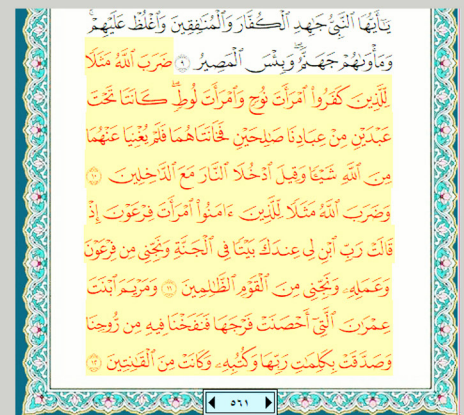 يَـٰٓأَيُّهَا ٱلنَّبِىُّ جَـٰهِدِ ٱلْكُفَّارَ وَٱلْمُنَـٰفِقِينَ وَٱغْلُظْ عَلَيْهِمْ ۚ
وَمَأْوَىٰهُمْ جَهَنَّمُ ۖ وَبِئْسَ ٱلْمَصِيرُ ٩ ضَرَبَ ٱللَّهُ مَثَلًا
لِّلَّذِينَ كَفَرُوا۟ ٱمْرَأَتَ نُوحٍ وَٱمْرَأَتَ لُوطٍ ۖ كَانَتَا تَحْتَ
عَبْدَيْنِ مِنْ عِبَادِنَا صَـٰلِحَيْنِ فَخَانَتَاهُمَا فَلَمْ يُغْنِيَا عَنْهُمَا
مِنَ ٱللَّهِ شَيْـًٔا وَقِيلَ ٱدْخُلَا ٱلنَّارَ مَعَ ٱلدَّٰخِلِينَ ١٠
وَضَرَبَ ٱللَّهُ مَثَلًا لِّلَّذِينَ ءَامَنُوا۟ ٱمْرَأَتَ فِرْعَوْنَ إِذْ
قَالَتْ رَبِّ ٱبْنِ لِى عِندَكَ بَيْتًا فِى ٱلْجَنَّةِ وَنَجِّنِى مِن فِرْعَوْنَ
وَعَمَلِهِۦ وَنَجِّنِى مِنَ ٱلْقَوْمِ ٱلظَّـٰلِمِينَ ١١ وَمَرْيَمَ ٱبْنَتَ
عِمْرَٰنَ ٱلَّتِىٓ أَحْصَنَتْ فَرْجَهَا فَنَفَخْنَا فِيهِ مِن رُّوحِنَا
وَصَدَّقَتْ بِكَلِمَـٰتِ رَبِّهَا وَكُتُبِهِۦ وَكَانَتْ مِنَ ٱلْقَـٰنِتِينَ ١٢
٥٦١